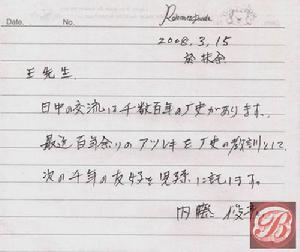 Date. No.
2008.3.15
王先生
日中の交流は千数百年の歴史があります。
最近百年余りのアツレキを歴史の教訓として
次の千年の友好を児孫に託します。
内藤
B